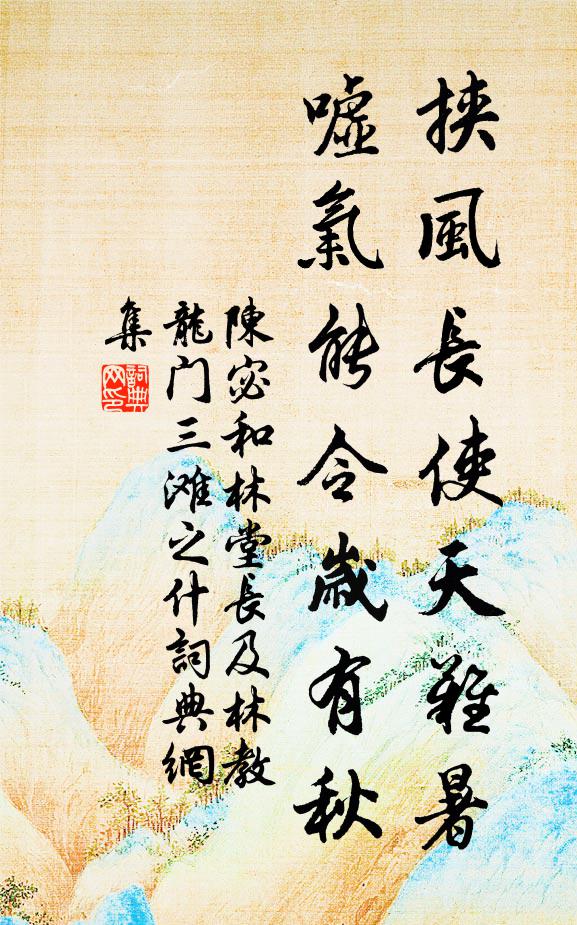 挾風長使天難暑
噓氣能令歲有秋
陳宓和林堂長及林教
龍门三滩之什詞典網
集
詞典
网印